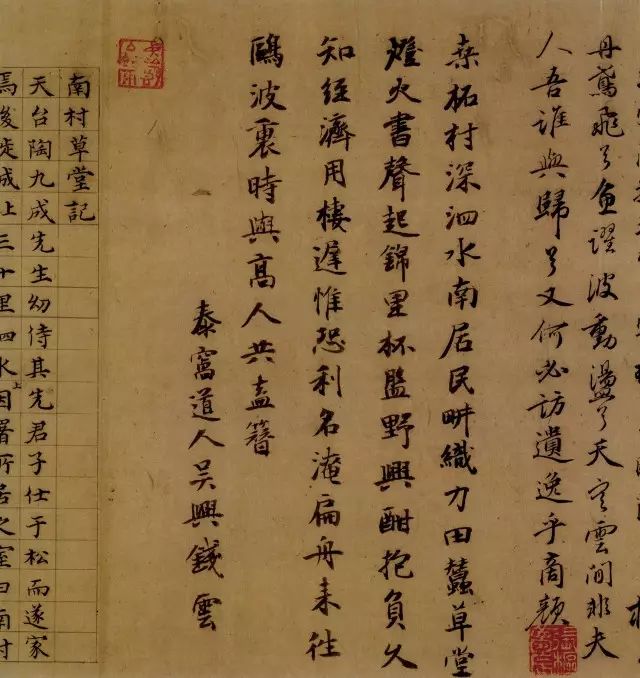 丹鳶飛兮魚躍波動盪兮天宇雲間非夫
人吾誰與歸兮又何必訪遺逸乎商顏
桒柘村深泗水南居民畊織力田蠶草堂
燈火書聲起錦里杯盤野興酣抱負久
知經濟用棲遲惟恐利名淹扁舟來往
鷗波裏時與高人共盍簪
泰窩道人吳興錢雲
南村草堂記
天台陶九成先生幼侍其先君子仕于松而遂家
焉後徙城上三十里泗水上因署所居之室曰南村